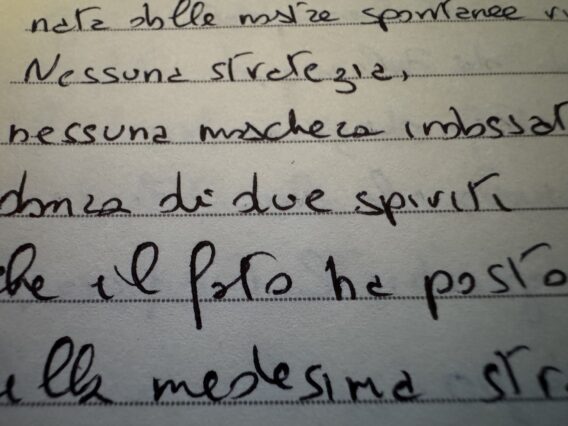 nata dalle nostre spontanee
Nessuna strategia,
nessuna maschera
danza di due spiriti
che il fato ha posto
medesima